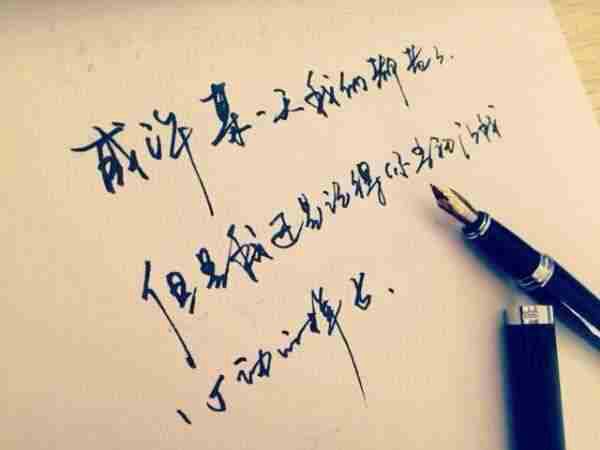 或许某一天我们都老了、
但是我还是记得你当初让我
心动的样子.